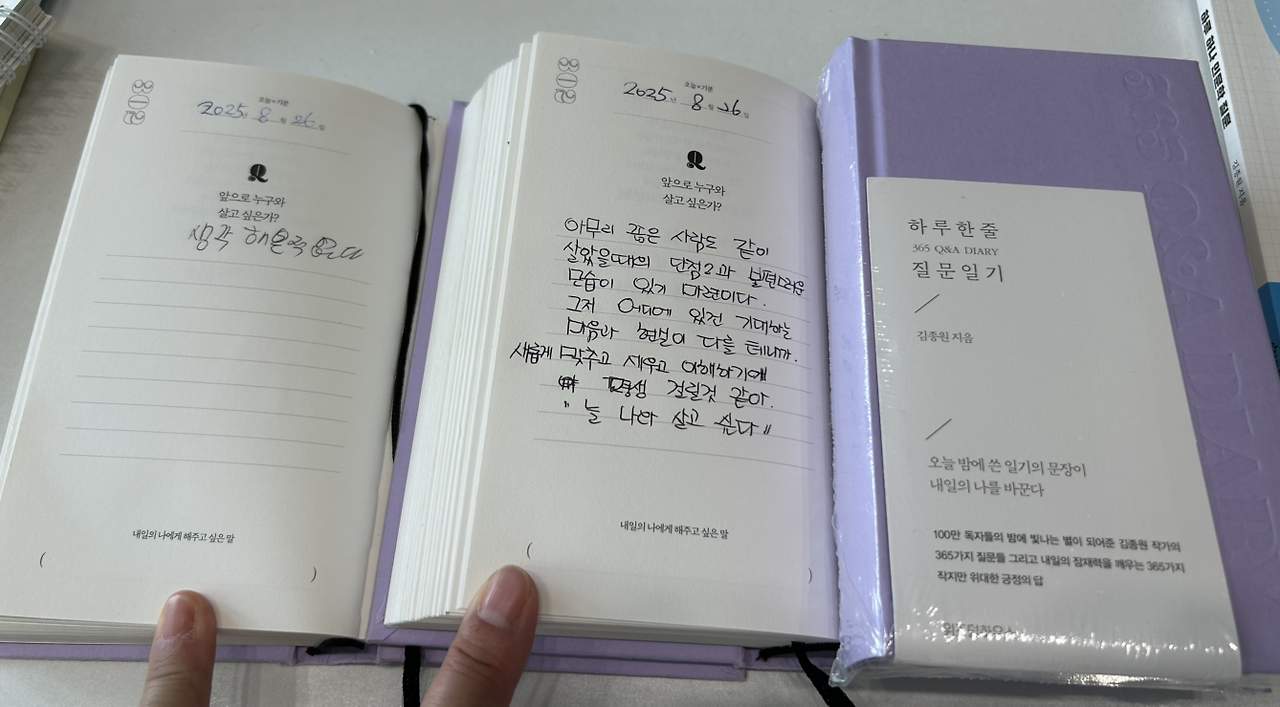 365
오늘의 기분
2025년 8월 26일
Q
앞으로 누구와
살고 싶은가?
생각 해본적 없다
내일의 나에게 해주고 싶은 말
( )
365
오늘의 기분
2025년 8월 26일
Q
앞으로 누구와
살고 싶은가?
아무리 좋은 사람도 같이
살았을때의 단점과 불편스러운
모습이 있기 마련이다.
그저 어디에 있건 기대하는
마음과 현실이 다를 테니까.
새롭게 맞추고 세우고 이해하기에
평생 걸릴것 같아.
"늘 나와 살고 싶다"
내일의 나에게 해주고 싶은 말
( )
365 Q&A DIARY
하루 한 줄
365 Q&A DIARY
질문 일기
김종원 지음
오늘 밤에 쓴 일기의 문장이
내일의 나를 바꾼다
100만 독자들의 밤에 빛나는 별이 되어준 김종원 작가의
365가지 질문들 그리고 내일의 잠재력을 깨우는 365가지
작지만 위대한 긍정의 답
하루 하나 인문학 질문
김종원 지음